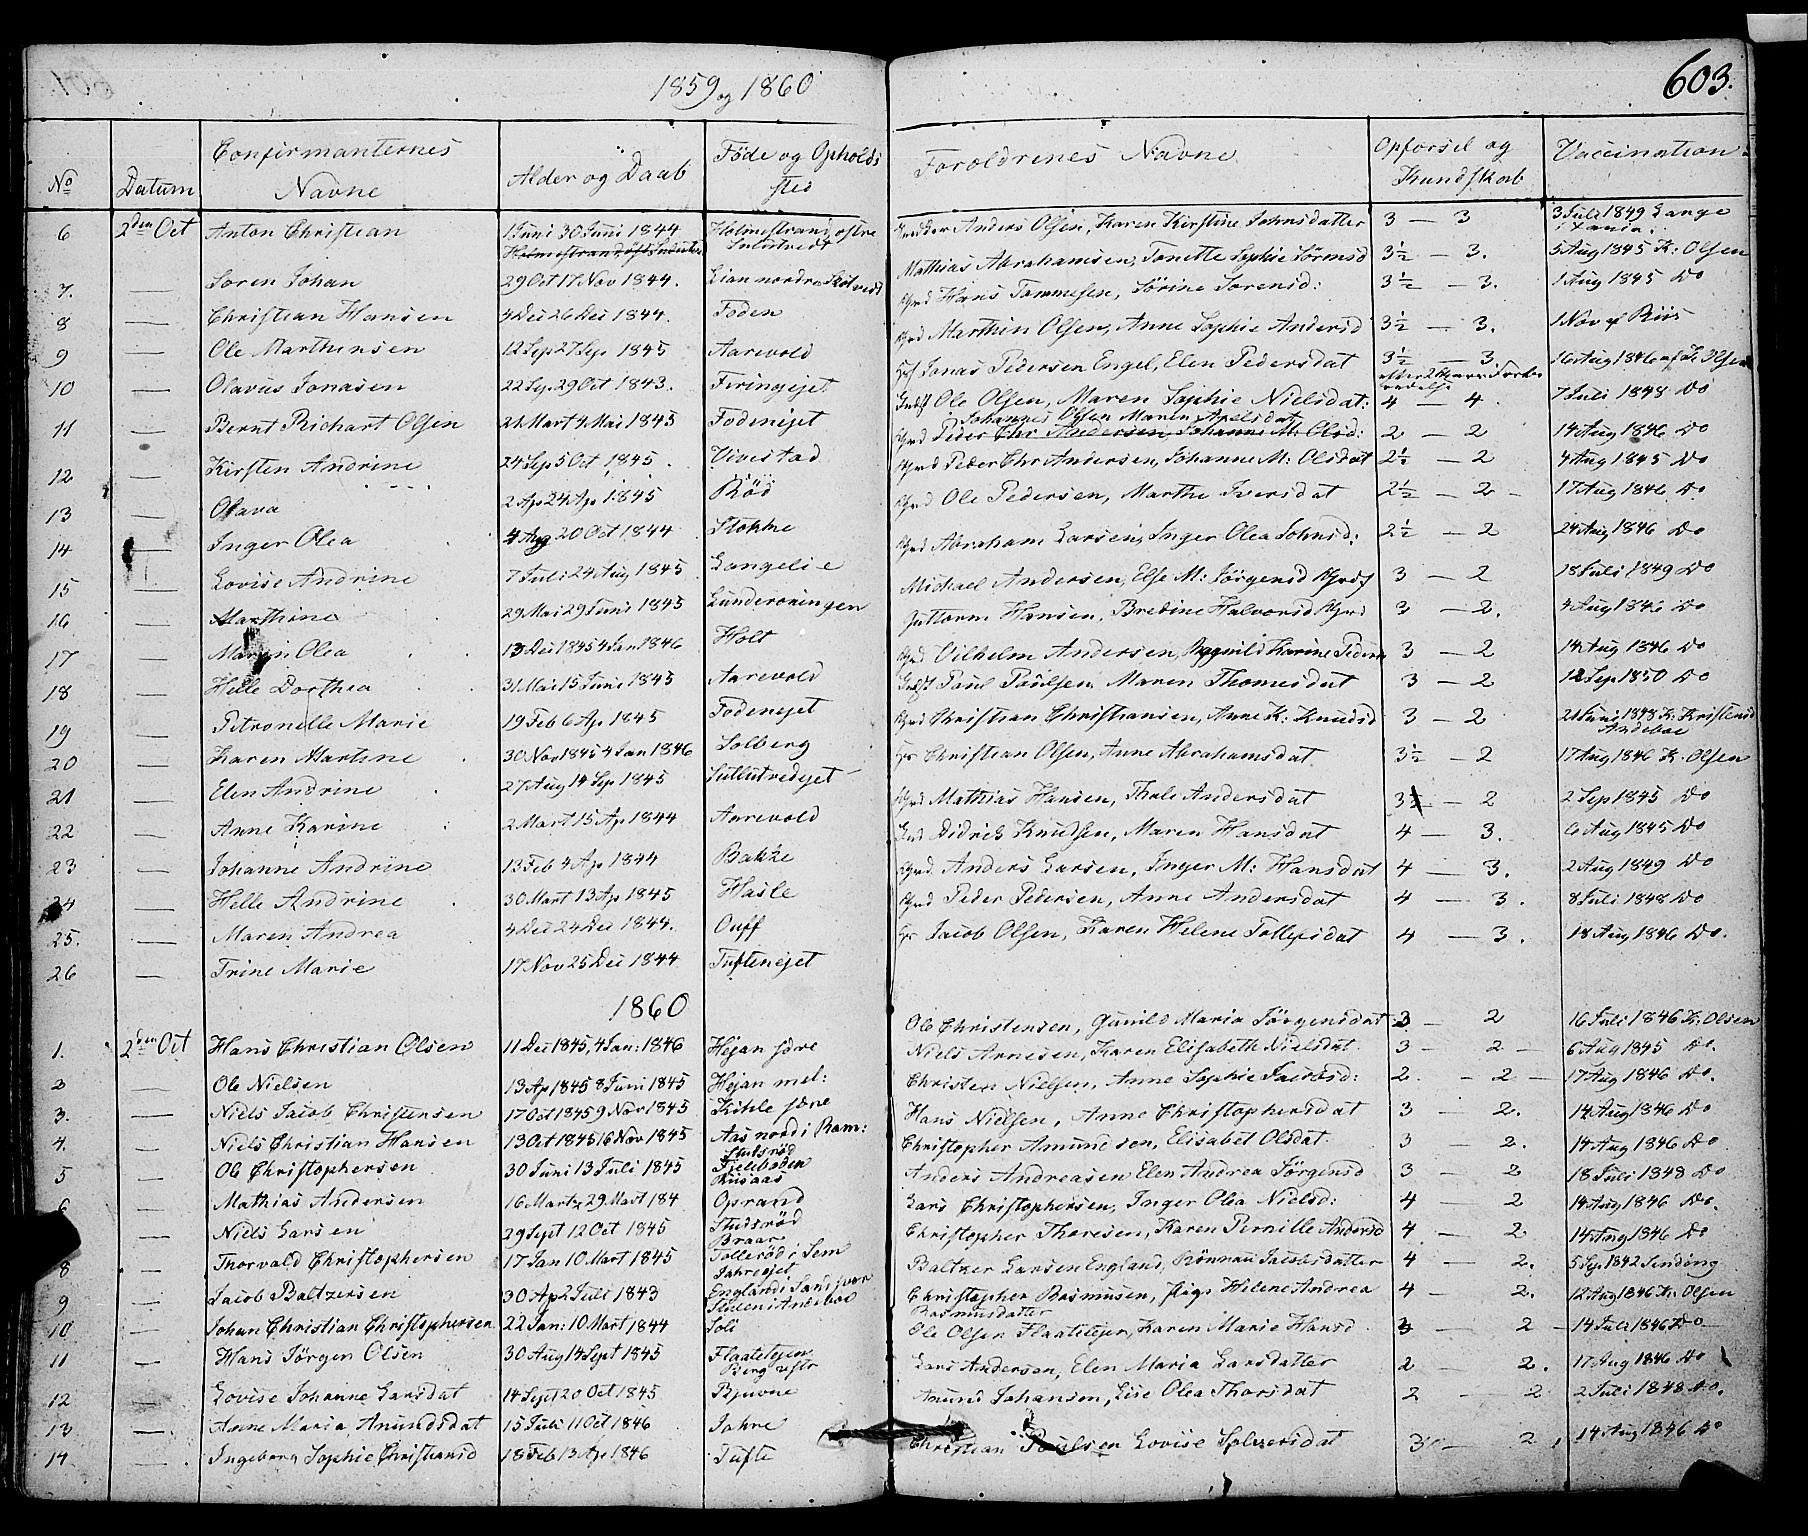 1859 og 1860
603.
No Datum Confirmanternes Navne Alder og Daab Føde og Opholds sted Forældrenes Navne Opførsel og Kundskab Vaccination
6 2den Oct Anton Christian 1 Juni 30 Juni 1844 Holmestrand, østre Anders Olsen, Karen Kirstine Johnsdatter 3 — 3 3 Juli 1849 Lange
7. — Søren Johan 29 Oct 17 Nov 1844. Lian nordre Mathias Abrahamsen, Tonette Sophie 3½ — 3. 5 Aug 1845 K: Olsen
8 — Christian Hansen 4 Dec 26 Dec 1844. Foden Hans Tommesen, Sørine Sørensd: 3½ — 3. 1 Aug 1845 Do
9 — Ole Marthinsen 12 Sep 27 Sep 1845 Aarevold Marthin Olsen, Anne Sophie Andersd 3½ — 3. 1 Nov Riis
10 — Olavus Jonasen 22 Sep. 29 Oct 1843. Firingejet Jonas Pedersen Engel, Elen Pedersdat 3½ — 3 16 Aug 1846 af K. Olsen
11 — Bernt Richart Olsen 21 Mart 4 Mai 1845 Fodenejet Ole Olsen, Maren Sophie Nielsdat: 4 — 4. 7 Juli 1848 Do
12 — Kirsten Andrine 24 Sep 5 Oct 1845. Vivestad Johannes Olsen Maren Axelsdat
Peder Chr Andersen, Johanne M: Olsd: 2 — 2 14 Aug 1846 Do
13 — Olava 2 Ap 24 Ap 1845 Rød Peder Chr Andersen, Johanne M: Olsdat 2½ — 2 4 Aug 1845 Do
14 — Inger Olea 4 Aug 20 Oct 1844 Stokke Ole Pedersen, Marthe Iversdat 2½ — 2 — 17 Aug 1846 Do
15 — Lovise Andrine 7 Juli 24 Aug 1845 Langelie Abraham Larsen, Inger Olea Johnsd: 2½ — 2 24 Aug 1846 Do
16 — Marthine 29 Mai 29 Juni 1845 Michael Andersen, Else M: Jørgensd 3 — 2 18 Juli 1849 Do
17 — Maren Olea 13 Dec 1845 4 Jan 1846 Holt Guttorm Hansen, Bredine Halvorsd 3 — 2. 4 Aug 1846 Do
18 — Helle Dorthea 31 Mai 15 Juni 1845 Aarevold Vilhelm Andersen, Ragnild Karine 3 — 2 14 Aug 1846 Do
19 — Petronelle Marie 19 Feb 6 Ap 1845 Fodenejet Paul Paulsen Maren Thomesdat 3 — 2 12 Sep 1850 Do
20 — Karen Martine 30 Nov 1845 4 Jan 1846 Solberg Christian Christiansen, Anne K: Knudsd 3 — 2 21 Juni 1848 K: Kristensd Andeboe
21 — Elen Andrine 27 Aug 14 Sep 1845 Christian Olsen, Anne Abrahamsdat 3½ — 2 17 Aug 1846 K: Olsen
22 — Anne Karine 2 Mart 15 Ap 1844 Aarevold Mathias Hansen, Thale Andersdat — 2 2 Sep 1845 Do
23 — Johanne Andrine 13 Feb 4 Ap 1844 Bakke Didrich Knudsen, Maren Hansdat 4 — 3. 6 Aug 1845 Do
24 — Helle Andrine 30 Mart 13 Ap 1845 Hasle Anders Larsen, Inger M: Hansdat 4 — 3. 2 Aug 1849 Do
25. — Maren Andrea 4 Dec 24 Dec 1844. Ouff Peder Pedersen, Anne Andersdat 4 — 3. 8 Juli 1848 Do
26 — Trine Marie 17 Nov 25 Dec 1844 Tuftenejet Jacob Olsen, Karen Helene Tollefsdat 4 — 3. 18 Aug 1846 Do.
1860
1. 2den Oct Hans Christian Olsen 11 Dec 1845, 4 Jan: 1846 Hejan søre Ole Christensen, Gunild Maria Jørgensdat: 3 — 2 16 Juli 1846 K: Olsen
2 — Ole Nielsen 13 Ap 1845 8 Juni 1845 Hejan mel: Niels Arnesen, Karen Elisabeth Nielsdat 3 — 2 — 6 Aug 1845 Do.
3. — Niels Jacob Christensen 17 Oct 1845 9 Nov 1845 Kihle søre Christen Nielsen, Anne Sophie Jacobsd: 2. — 2 — 17 Aug 1846 Do.
4. — Niels Christian Hansen 13 Oct 1845 16 Nov 1845 Aas nord i Ram: Hans Nielsen, Anne Christophersdat 3 — 2. 14 Aug 1846 Do
5 — Ole Christophersen 30 Juni 13 Juli 1845 Studsrød Fieleboden Christopher Amundsen, Elisabet Olsdat. 3 — 2. 14 Aug 1846 Do
6 — Mathias Andersen 16 Mart 29 Mart 184 Oprand Anders Andreasen Elen Andrea Jørgensd 3 — 2 18 Juli 1848 Do
— Niels Larsen 29 Sept 12 Oct 1845 Studsrød Braar Lars Christophersen, Inger Olea Nielsd: 4 — 2 14 Aug 1846 Do.
8 — Thorvald Christophersen 17 Jan 10 Mart 1845 Tollerød i Sem Jahreejet Christopher Thoresen, Karen Pernille Andersd 4 — 2. 14 Aug 1846 Do
9 — Jacob Baltzersen 30 Ap 2 Juli 1843 England i Sand Baltzer Larsen England, Rønnau Jacobsdatter 4 — 2. 5 Sep 1842 Sending
10 — Johan Christian Christophersen 22 Jan: 10 Mart 1844 Soli Christopher Rasmusen, Helene Andrea Rasmusdatter 4 — 2. 12 Aug 1846 K: Olsen
11 — Hans Jørgen Olsen 30 Aug 14 Sept 1845 Flaatetejen Ole Olsen Flaatetejen, Karen Marie Hansd 3 — 2 — 14 Juli 1846 Do
12 — Lovise Johanne Larsdat 14 Sept 20 Oct 1845 Berg Bjuvne Lars Andersen, Elen Maria Larsdatter 2 — 2. 17 Aug 1846 Do
13 — Anne Maria Amundsdat 15 Juli 11 Oct 1846 Jahre Amund Johansen, Lise Olea Thorsdat 2 — 2 2 Juli 1848 Do.
14 — Ingeborg Sophie Christiansd 18 Feb 13 Ap 1846 Tufte Christian Paulsen Lovise 3 — 2 14 Aug 1846 Do